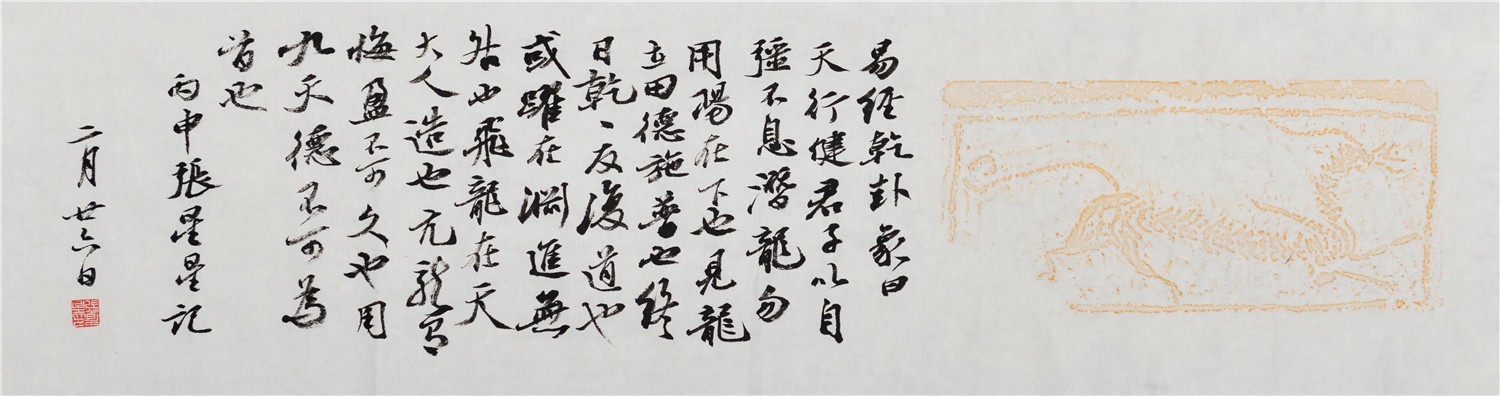 易经乾卦象曰
天行健君子以自
彊不息潛龍勿
用陽在下也見龍
在田德施普也終
日乾、反復道也
或躍在淵進無
咎也飛龍在天
大人造也亢龍有
悔盈不可久也用
九天德不可為
首也
丙申張星星記
二月廿六日